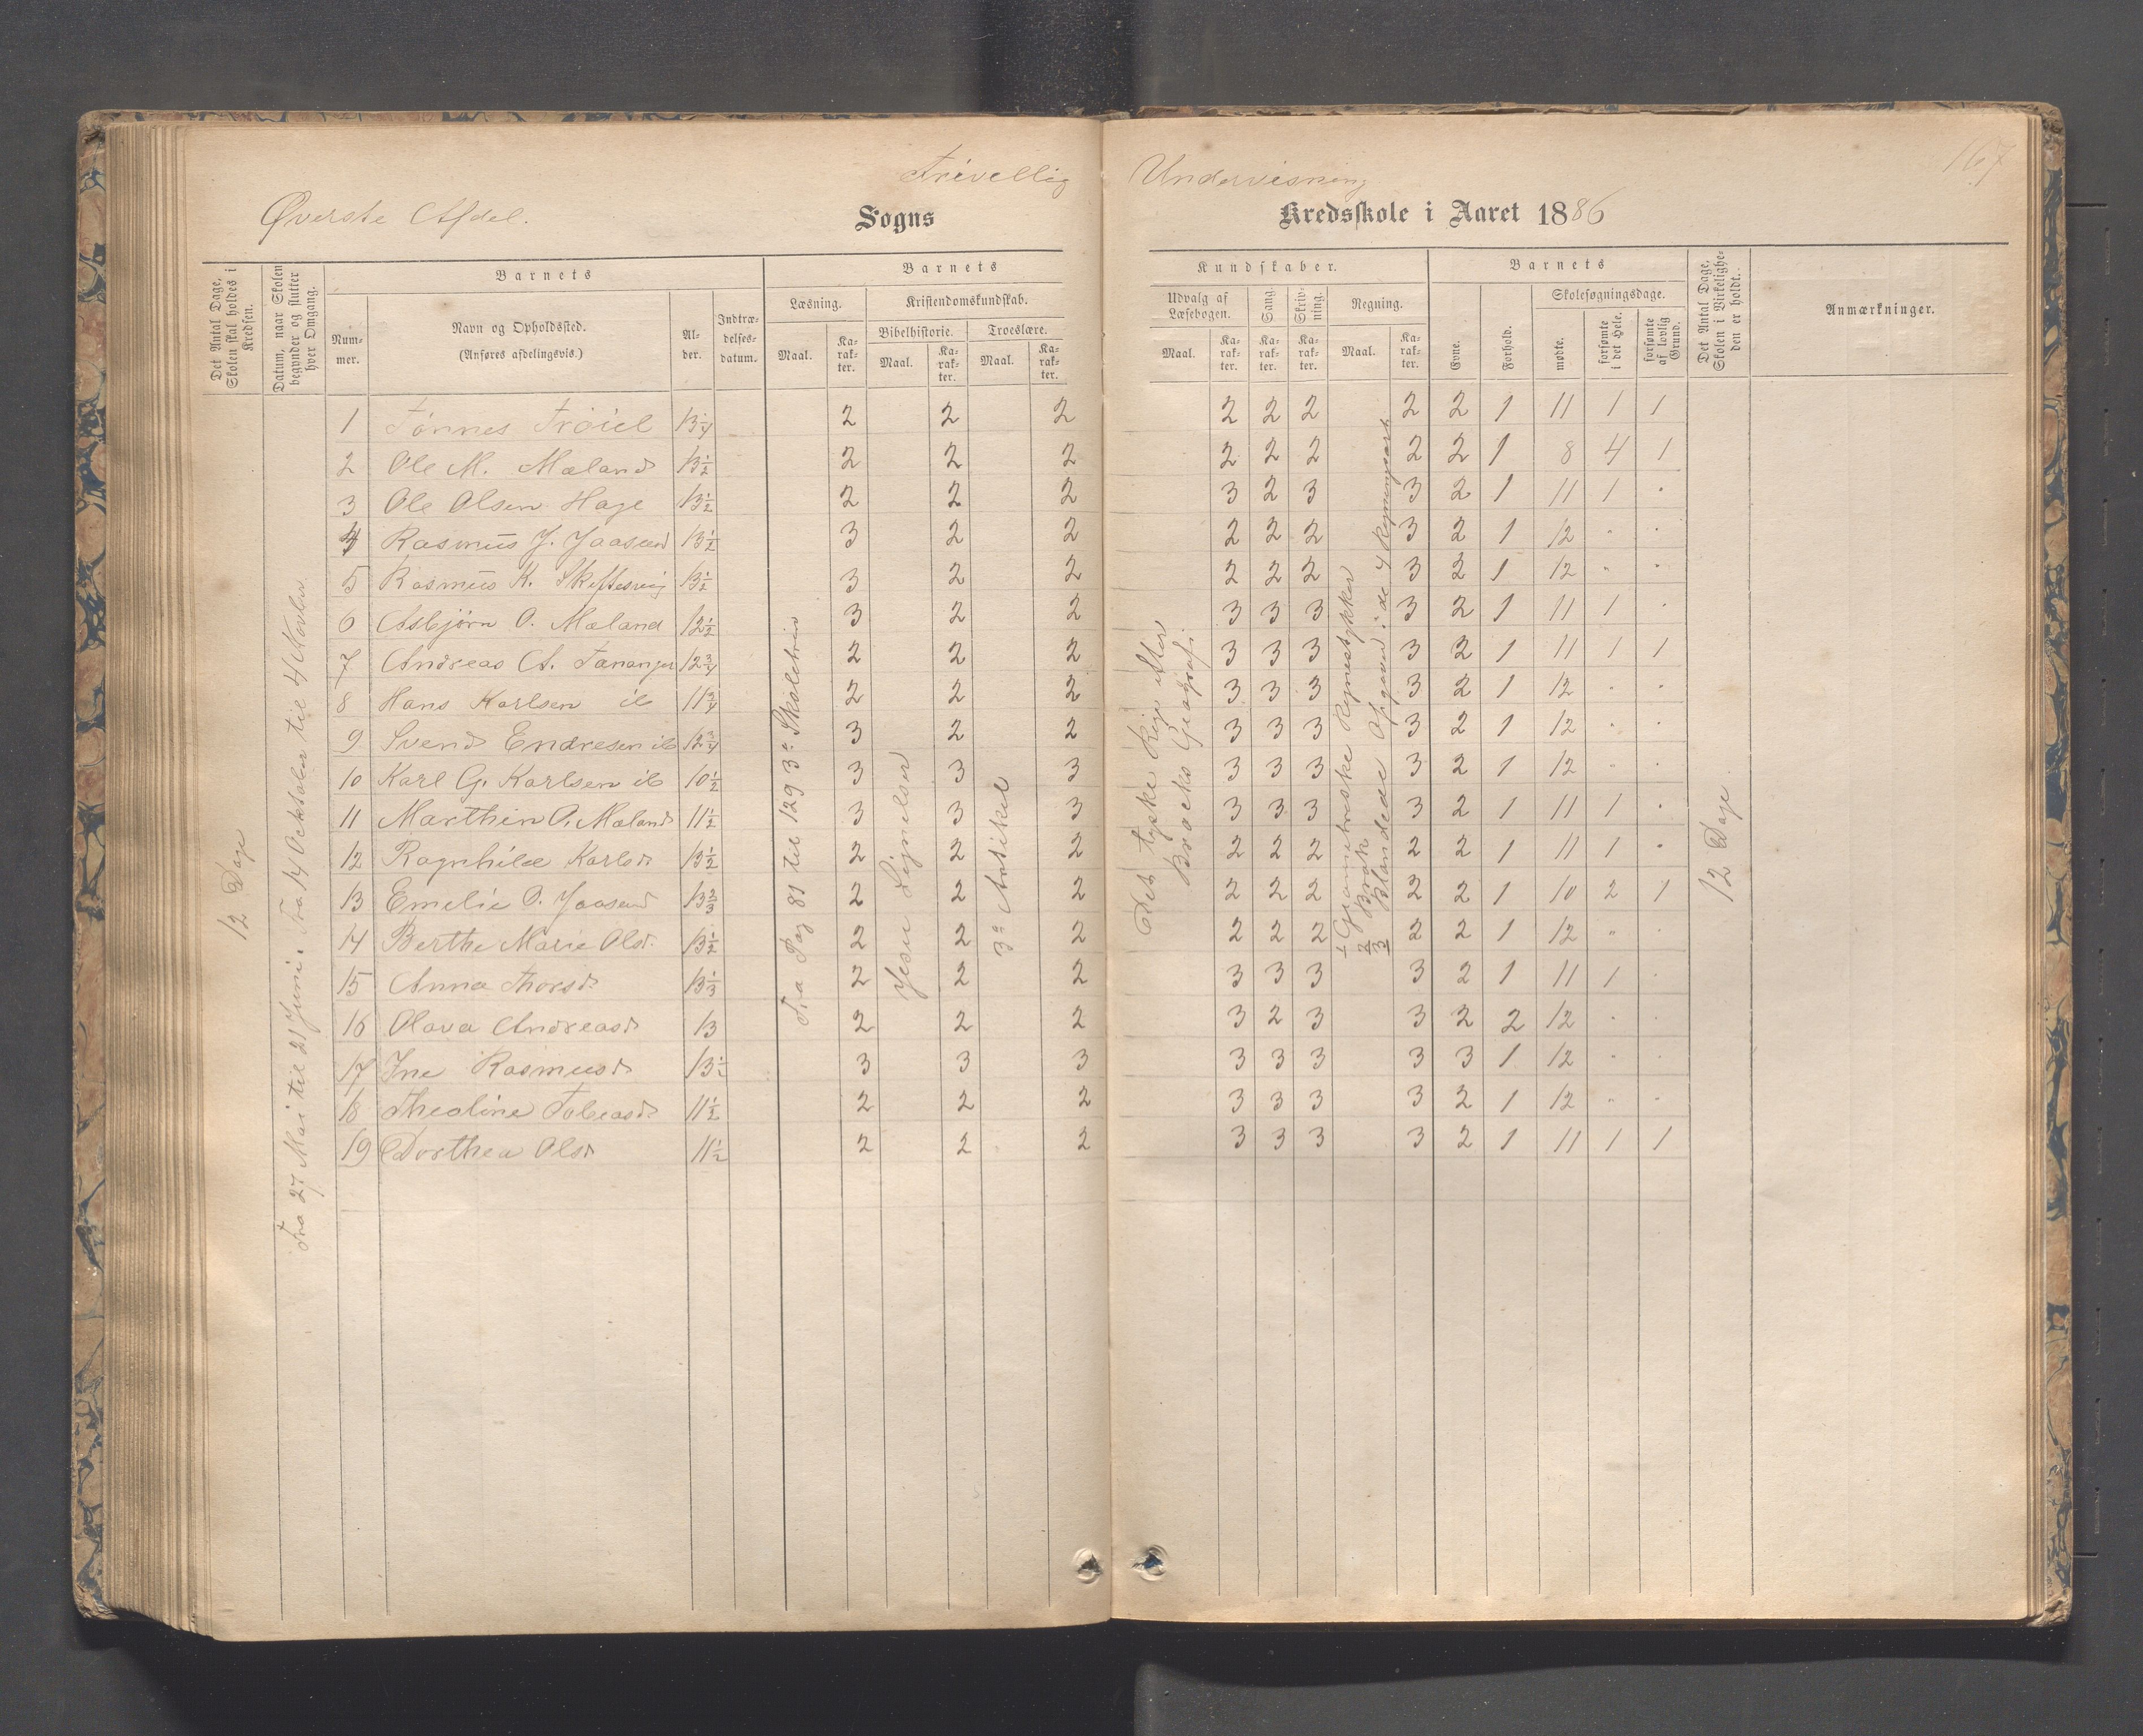 167
Frivillig Undervisning
Øverste Afdel. Sogns Kredsskole i Aaret 1886
Det Antal Dage, Skolen skal holdes i Kredsen.
Datum, naar Skolen begynder og slutter hver Omgang.
Barnets
Num-mer.
Navn og Opholdssted.
(Anføres afdelingsvis.)
Al-der.
Indtræ-delses-datum.
Barnets
Læsning.
Maal.
Ka-rak-ter.
Kristendomskundskab.
Bibelhistorie.
Maal.
Ka-rak-ter.
Troeslære.
Maal.
Ka-rak-ter.
Kundskaber.
Udvalg af Læsebogen.
Maal.
Ka-rak-ter.
Sang.
Ka-rak-ter.
Skriv-ning.
Ka-rak-ter.
Regning.
Maal.
Ka-rak-ter.
Barnets
Evne.
Forhold.
Skolesøgningsdage.
mødte.
forsømte i det Hele.
forsømte af lovlig Grund.
Det Antal Dage, Skolen i Virkelighe-den er holdt.
Anmærkninger.
12 Dage
Fra 27 Mai til 21 Juni. Fra 14 Ocktober til 4 Novbr
Fra Pag 81 til 129 3die Skoletrin
Jesu Lignelser
3die Artikel
Det tyske Rige efter
Geografi
Geometriske Regnestykker
Brøk
Blandede Opgaver i de 4 Regningsart
12 Dage
1 Tønnes Trøiel 13 1/4 2 2 2 2 2 2 2 2 1 11 1 1
2 Ole M. Mæland 13 1/2 2 2 2 2 2 2 2 2 1 8 4 1
3 Ole Olsen Hage 13 1/2 2 2 2 3 2 3 3 2 1 11 1 .
4 Rasmus J. Jaasund 13 1/2 3 2 2 2 2 2 3 2 1 12 . .
5 Rasmus K. 13 1/2 3 2 2 2 2 2 3 2 1 12 . .
6 Asbjørn O. Mæland 12 1/2 3 2 2 3 3 3 3 2 1 11 1 .
7 Andreas A. Tananger 12 3/4 2 2 2 3 3 3 3 2 1 11 1 1
8 Hans Karlsen ib 11 3/4 2 2 2 3 3 3 3 2 1 12 . .
9 Svend Endresen ib 12 3/4 3 2 2 3 3 3 3 2 1 12 . .
10 Karl G. Karlsen ib 10 1/2 3 3 3 3 3 3 3 2 1 12 . .
11 Marthin O. Mæland 11 1/2 3 3 3 3 3 3 3 2 1 11 1 .
12 Ragnhild Karlsd. 13 1/2 2 2 2 2 2 2 2 2 1 11 1 .
13 Emelie O. Jaasund 13 2/3 2 2 2 2 2 2 2 2 1 10 2 1
14 Berthe Marie Olsd. 13 1/2 2 2 2 2 2 2 2 2 1 12 . .
15 Anna Thorsd. 13 1/3 2 2 2 3 3 3 3 2 1 11 1 .
16 Olava Andreasd. 13 2 2 2 3 2 3 3 2 2 12 . .
17 Ine Rasmusd. 13 1/2 3 3 3 3 3 3 3 3 1 12 . .
18 Theoline Tobiasd. 11 1/2 2 2 2 3 3 3 3 2 1 12 . .
19 Dorthea Olsd. 11 1/2 2 2 2 3 3 3 3 2 1 11 1 1